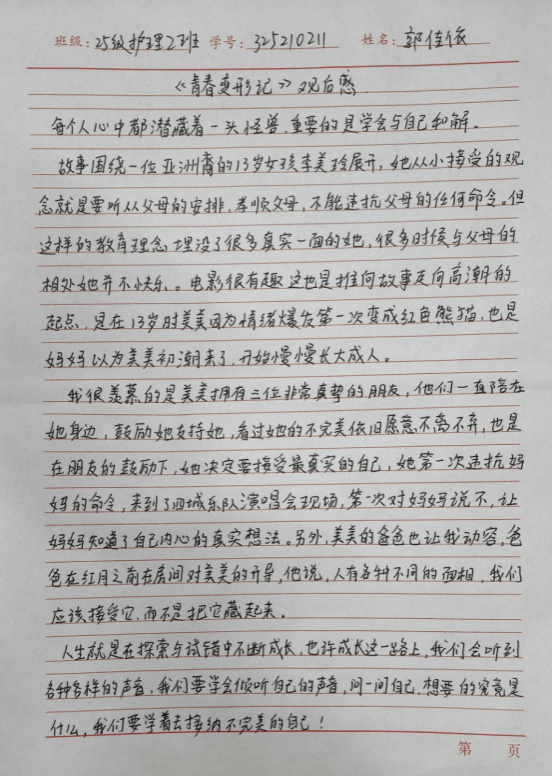 班级:25级护理2班 学号:325210211 姓名:郭佳依
《青春变形记》观后感
每个人心中都潜藏着一头怪兽,重要的是学会与自己和解。
故事围绕一位亚洲裔的13岁女孩李美玲展开,她从小接受的观
念就是要听从父母的安排,孝顺父母,不能违抗父母的任何命令。但
这样的教育理念埋没了很多真实一面的她,很多时候与父母的
相处她并不快乐。电影很有趣这也是推向故事走向高潮的
起点,是在13岁时美美因为情绪爆发第一次变成红色熊猫,也是
妈妈以为美美初潮来了,开始慢慢长大成人。
我很羡慕的是美美拥有三位非常真挚的朋友,他们一直陪在
她身边,鼓励她支持她,看过她的不完美依旧愿意不离不弃,也是
在朋友的鼓励下,她决定要接受最真实的自己,她第一次违抗妈
妈的命令,来到了四城乐队演唱会现场,第一次对妈妈说不,让
妈妈知道了自己内心的真实想法。另外,美美的爸爸也让我动容,爸
爸在红月之前在房间对美美的开导,他说,人有各种不同的面相,我们
应该接受它,而不是把它藏起来。
人生就是在探索与试错中不断成长,也许成长这一路上,我们会听到
各种各样的声音,我们要学会倾听自己的声音,问一问自己,想要的究竟是
什么,我们要学着去接纳不完美的自己!
第 页